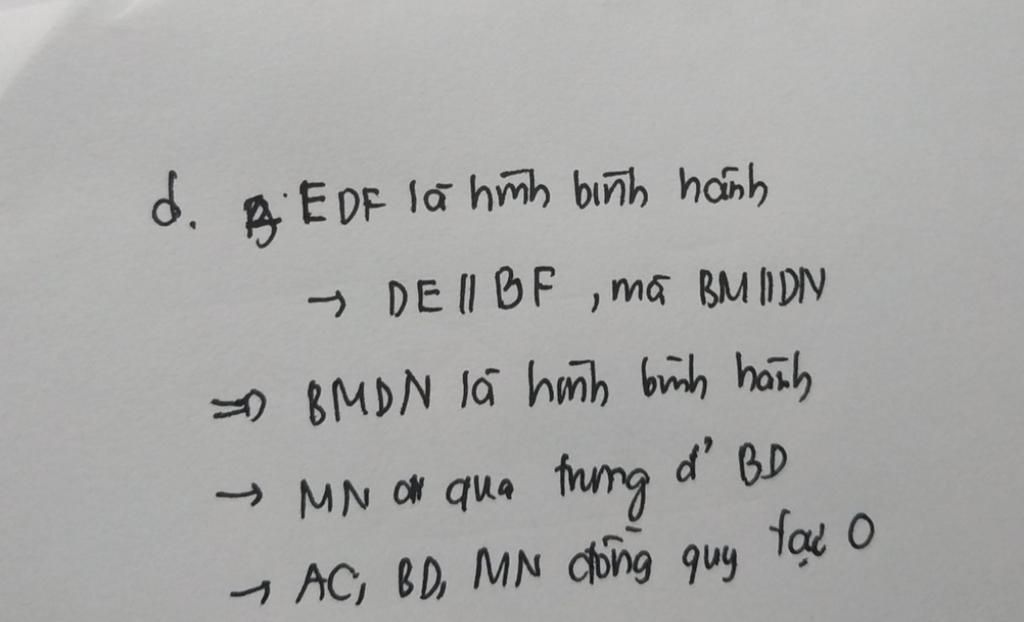 d. BEDF là hình bình hành
→ DE // BF , mà BM // DN
⇒ BMDN là hình bình hành
→ MN qua trung đ' BD
→ AC, BD, MN đồng quy tại O